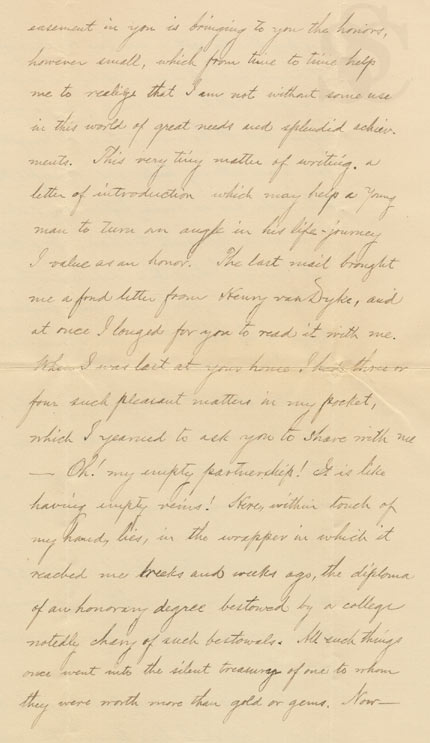 easement in you is bringing to you the honors,
however small, which from time to time help
me to realize that I am not without some use
in this world of great needs and splendid achiev-
ments. This very tiny matter of writing a
letter of introduction which may help a young
man to turn an angle in his life-journey
I value as an honor. The last mail brought
me a fond letter from Henry van Dyke, and
at once I longed for you to read it with me.
When I was last at your house I had three or
four such pleasant matters in my pocket,
which I yearned to ask you to share with me
— Oh! my empty partnership! It is like
having empty veins! Here, within touch of
my hand, lies, in the wrapper in which it
reached me weeks and weeks ago, the diploma
of an honorary degree bestowed by a college
notedly chary of such bestowals. All such things
once went into the silent treasury of one to whom
they were worth more than gold or gems. Now—